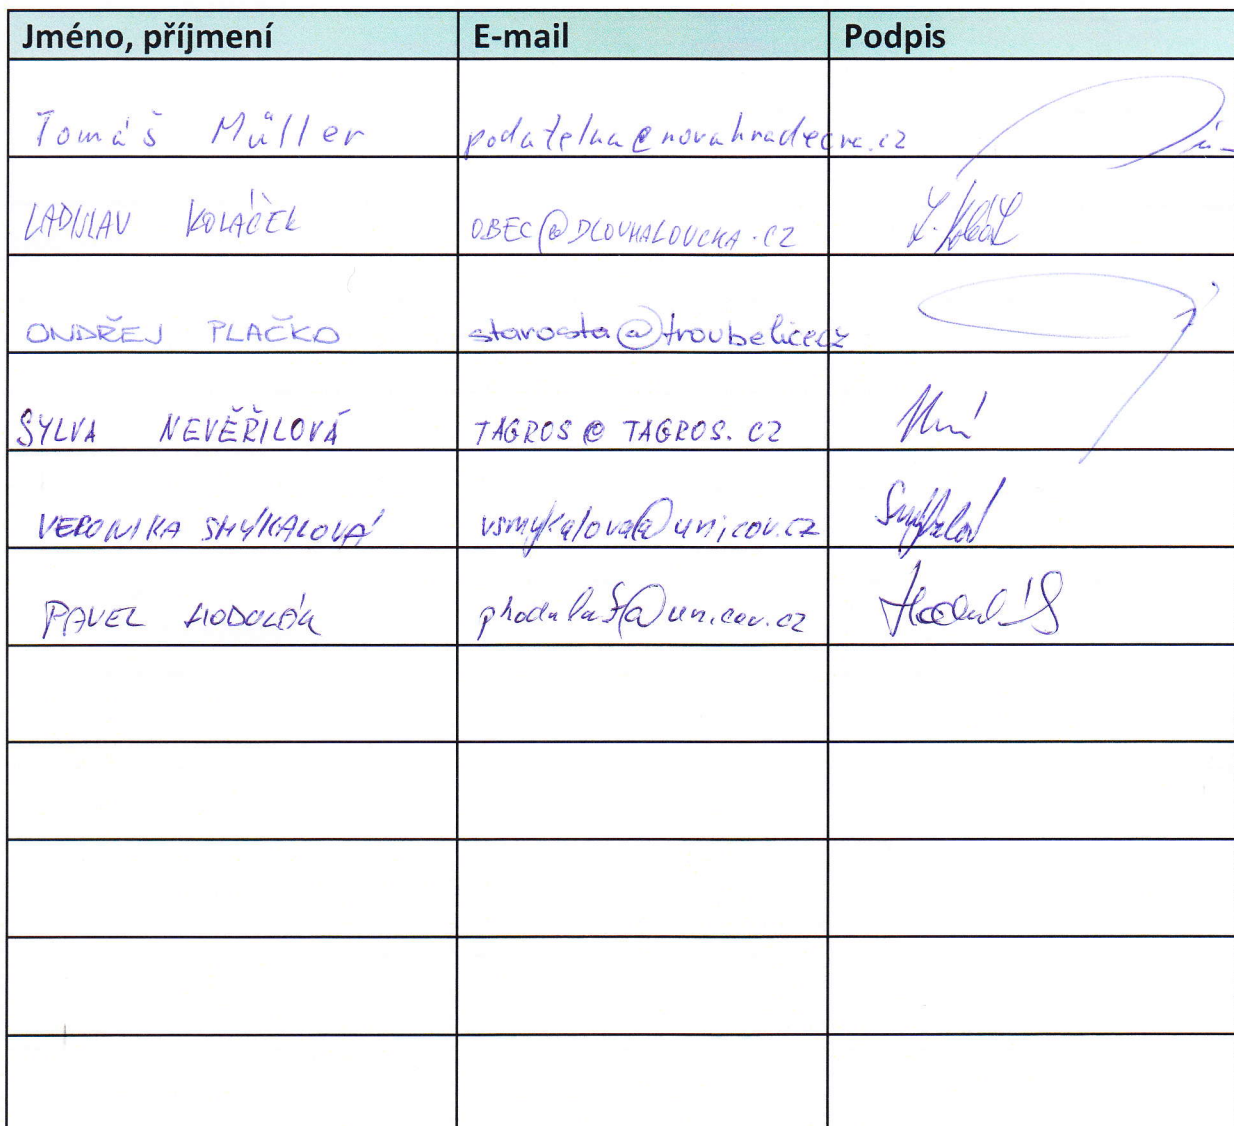 Jméno, příjmení E-mail Podpis
Tomáš Müller podatelna@novahradecna.cz
LADISLAV KOLÁČEK OBEC@DLOUHALOUCKA.CZ
ONDŘEJ PLAČKO starosta@troubelice.cz
SYLVA NEVĚŘILOVÁ TAGROS@TAGROS.CZ
VERONIKA SMÝKALOVÁ vsmykalova@unicov.cz
PAVEL HODULÁK